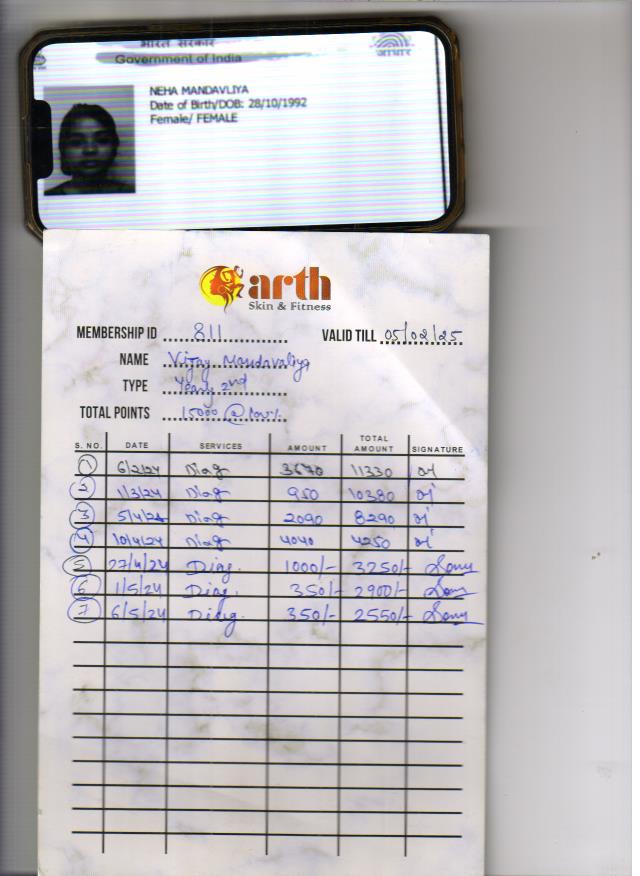 भारत सरकार
Government of India
आधार
NEHA MANDAVLIYA
Date of Birth/DOB: 28/10/1992
Female/ FEMALE
arth
Skin & Fitness
MEMBERSHIP ID 811 VALID TILL 05/02/25
NAME Vijay Mandavaliya
TYPE 2nd
TOTAL POINTS 15000 @
S. NO. DATE SERVICES AMOUNT TOTAL AMOUNT SIGNATURE
1 6/2/24 Diag 3670 11330
2 1/3/24 Diag 950 10380
3 5/4/24 Diag 2090 8290
4 10/4/24 Diag 4040 4250
5 27/4/24 Diag. 1000/- 3250/-
6 1/5/24 Diag. 350/- 2900/-
7 6/5/24 Diag. 350/- 2550/-